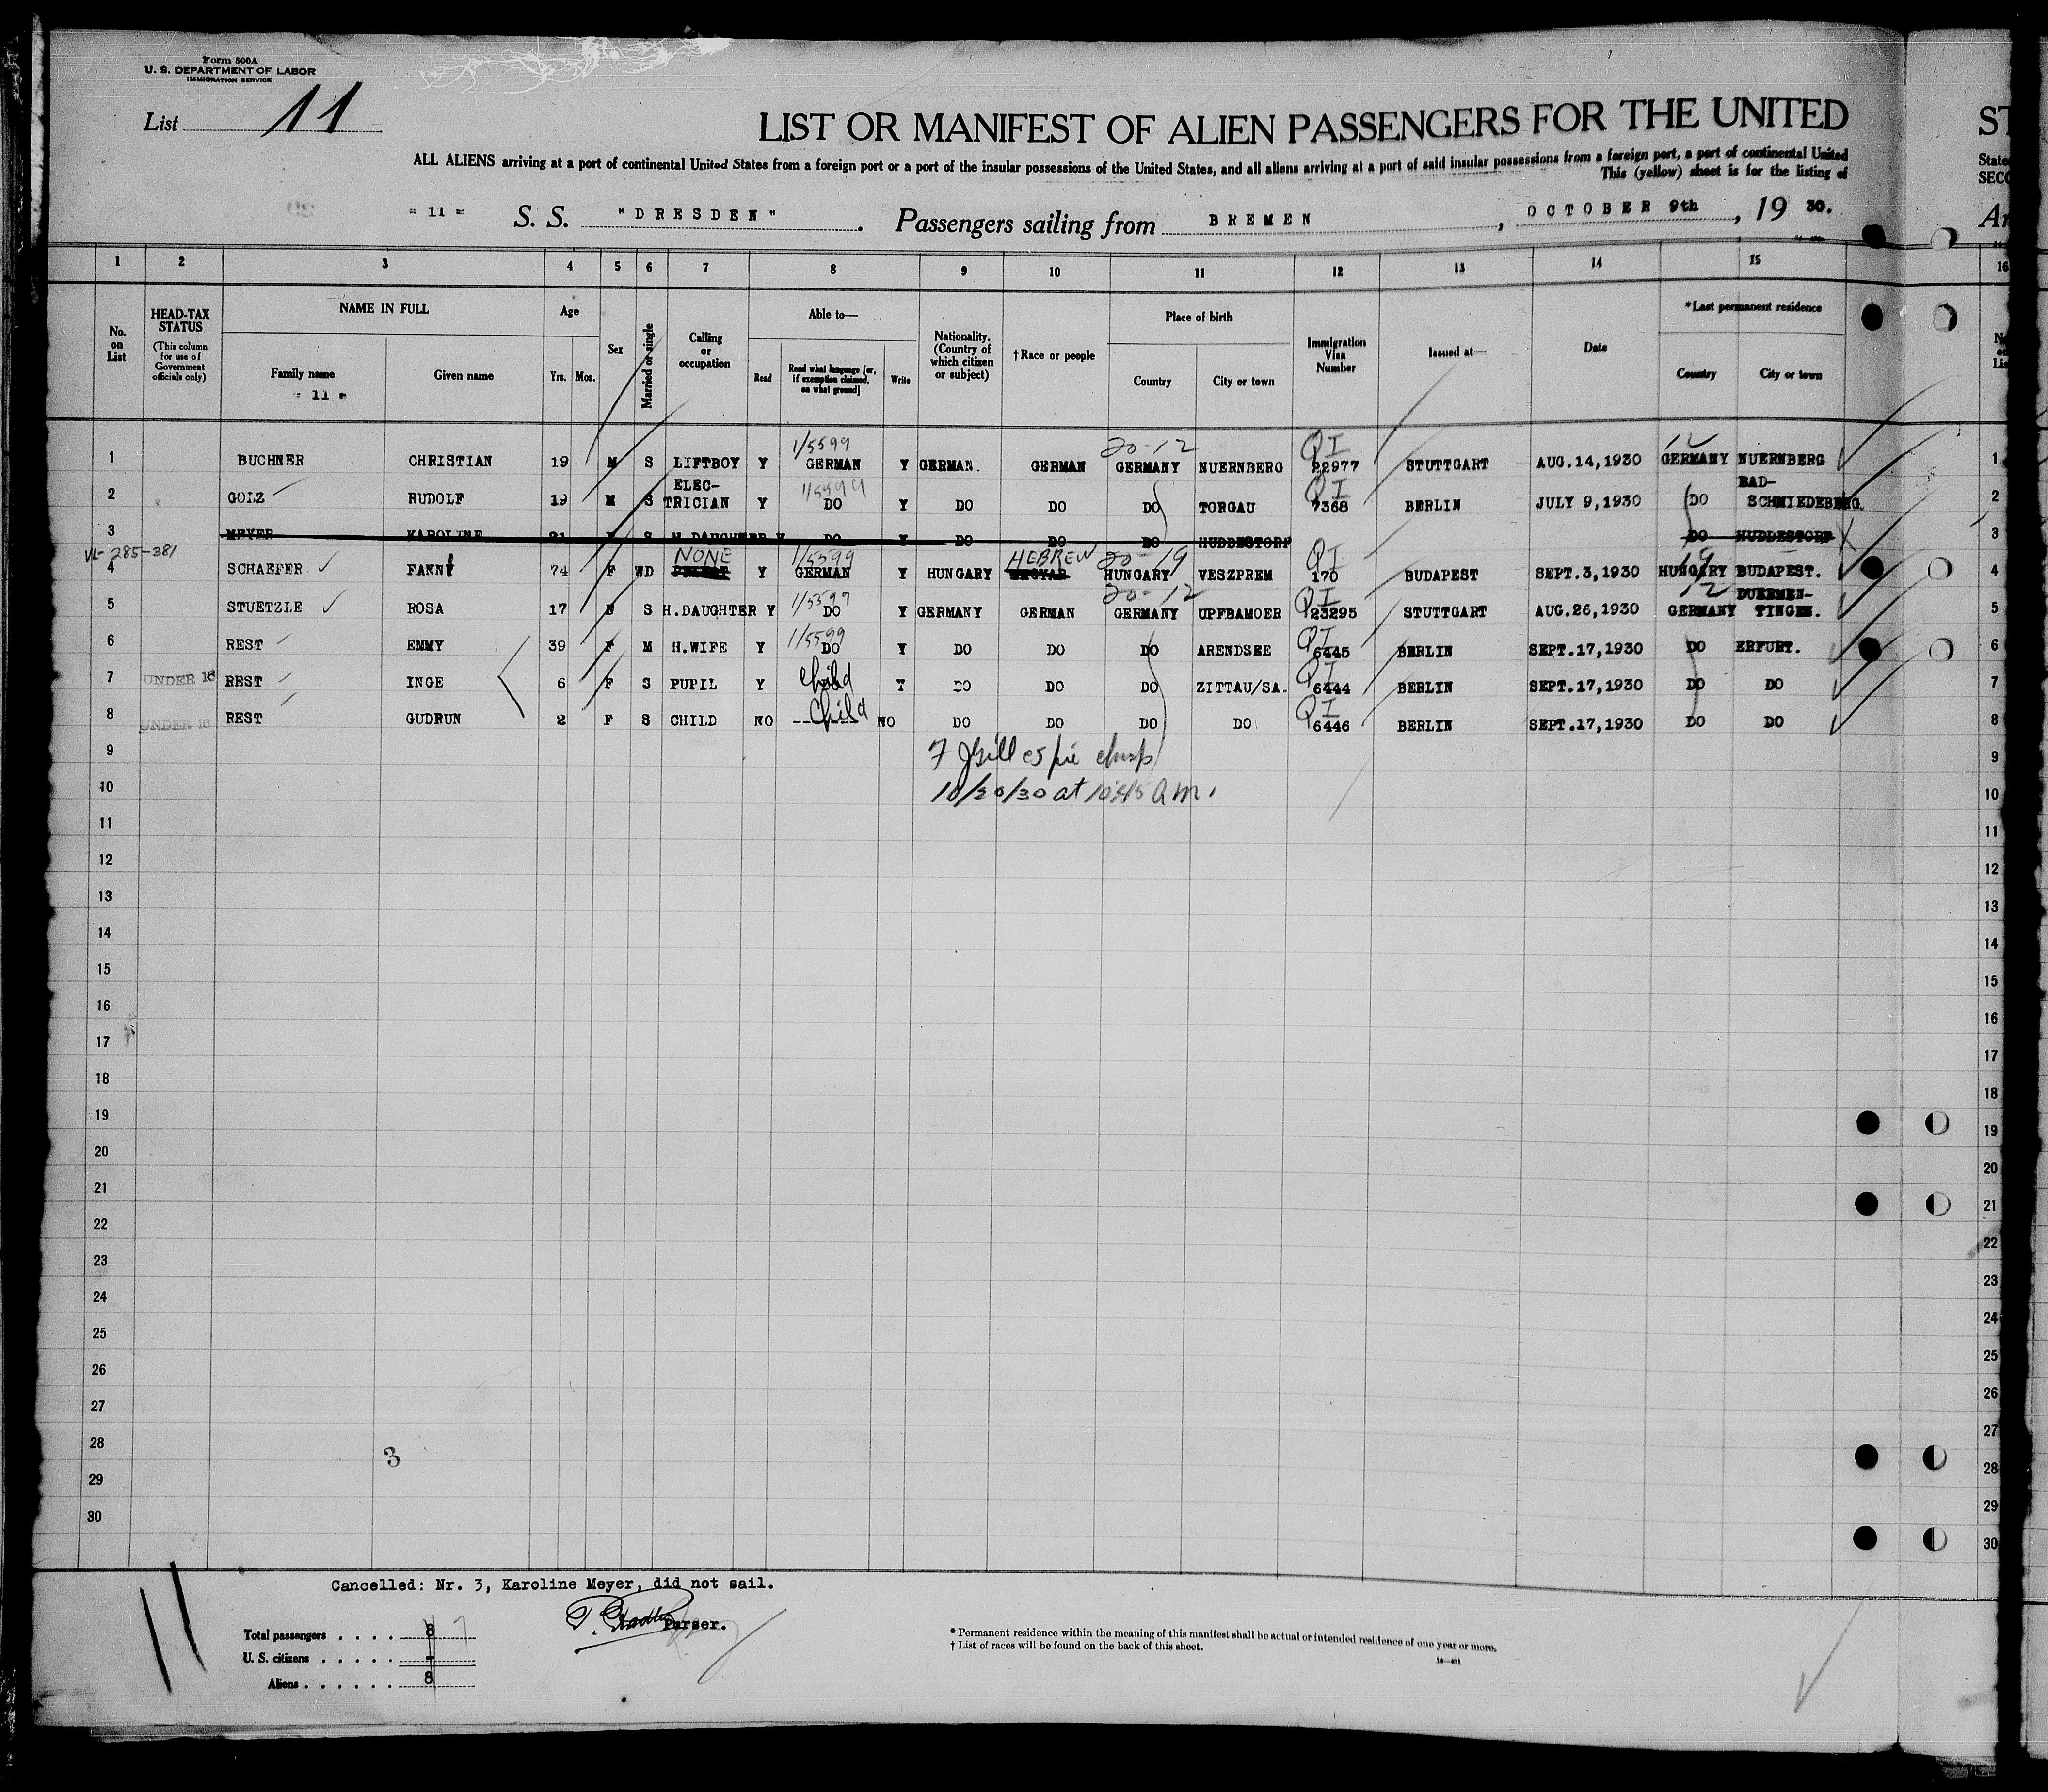 Form 500A
U. S. DEPARTMENT OF LABOR
IMMIGRATION SERVICE
List 11
LIST OR MANIFEST OF ALIEN PASSENGERS FOR THE UNITED
ST
ALL ALIENS arriving at a port of continental United States from a foreign port or a port of the insular possessions of the United States, and all aliens arriving at a port of said insular possessions from a foreign port, a port of continental United
This (yellow) sheet is for the listing of
- 11 - S. S. "DRESDEN". Passengers sailing from BREMEN, OCTOBER 9th, 19 30.
1 2 3 4 5 6 7 8 9 10 11 12 13 14 15 16
No. on List
HEAD-TAX STATUS (This column for use of Government officials only)
NAME IN FULL
Family name
- 11 -
Given name
Age
Yrs. Mos.
Sex
Married or single
Calling or occupation
Able to—
Read
Read what language [or, if exemption claimed, on what ground]
Write
Nationality. (Country of which citizen or subject)
†Race or people
Place of birth
Country City or town
Immigration Visa Number
Issued at—
Date
*Last permanent residence
Country City or town
1/5599 20-12 QI 12
1 BUCHNER CHRISTIAN 19 M S LIFTBOY Y GERMAN Y GERMAN. GERMAN GERMANY NUERNBERG 22977 STUTTGART AUG.14,1930 GERMANY NUERNBERG 1
ELEC- 1/5599 QI BAD-
2 GOLZ RUDOLF 19 M S TRICIAN Y DO Y DO DO DO TORGAU 7368 BERLIN JULY 9,1930 DO SCHMIEDEBERG. 2
3 MEYER KAROLINE 21 S H.DAUGHTER Y DO Y DO DO DO HUDDESTORF DO HUDDESTORF X 3
VL-285-381 NONE 1/5599 HEBREW 20-19 QI 19
4 SCHAEFER FANNY 74 F WD Y GERMAN Y HUNGARY MAGYAR HUNGARY VESZPREM 170 BUDAPEST SEPT.3,1930 HUNGARY BUDAPEST. 4
1/5599 20-12 QI 12 DUERMEN-
5 STUETZLE ROSA 17 S H.DAUGHTER Y DO Y GERMANY GERMAN GERMANY UPFBAMOER 23295 STUTTGART AUG.26,1930 GERMANY TINGEN. 5
1/5599 QI
6 REST EMMY 39 F M H.WIFE Y DO Y DO DO DO ARENDSEE 6445 BERLIN SEPT.17,1930 DO ERFURT. 6
7 UNDER 16 REST INGE 6 F S PUPIL Y Child Y DO DO DO ZITTAU/SA. QI 6444 BERLIN SEPT.17,1930 DO DO 7
8 UNDER 16 REST GUDRUN 2 F S CHILD NO Child NO DO DO DO DO QI 6446 BERLIN SEPT.17,1930 DO DO 8
9 F JGillespie 9
10 10/20/30 at 10:45 a.m. 10
11 11
12 12
13 13
14 14
15 15
16 16
17 17
18 18
19 19
20 20
21 21
22 22
23 23
24 24
25 25
26 26
27 27
28 3 28
29 29
30 30
Cancelled: Nr. 3, Karoline Meyer, did not sail.
Purser.
11
Total passengers . . . . 8 7
U. S. citizens . . . . . -
Aliens . . . . . . 8
* Permanent residence within the meaning of this manifest shall be actual or intended residence of one year or more.
† List of races will be found on the back of this sheet.